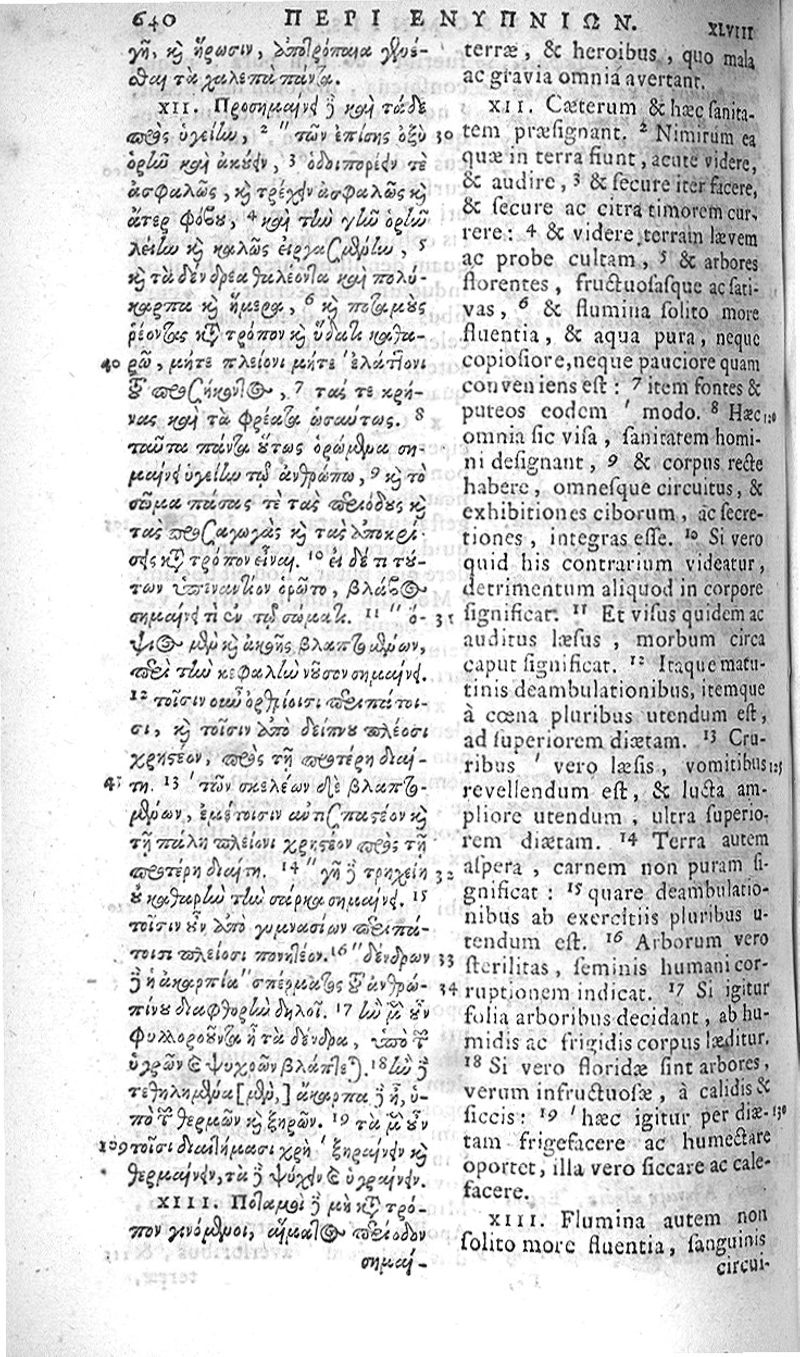 640 ΠΕΡΙ ΕΝΥΠΝΙΩΝ. XLVIII
γῇ, καὶ ἥρωσιν, ἀποτρόπαια γενέ-
σθαι τὰ χαλεπὰ πάντα.
XII. Προσημαίνει δὲ καὶ τάδε
πρὸς ὑγείην, 2 " τῶν ἐπὶ γῆς ὀξὺ 30
ὁρῇν καὶ ἀκούειν, 3 ὁδοιπορέειν τε
ἀσφαλῶς, καὶ τρέχειν ἀσφαλῶς καὶ
ἄτερ φόβου, 4 καὶ τὴν γῆν ὁρῇν
λείην καὶ καλῶς εἰργασμένην, 5
καὶ τὰ δένδρεα θαλέοντα καὶ πολύ-
καρπα καὶ ἥμερα, 6 καὶ ποταμοὺς
ῥέοντας κατὰ τρόπον καὶ ὕδατι καθα-
40 ρῷ, μήτε πλείονι μήτε ' ἐλάττονι
τοῦ προσήκοντος, 7 τάς τε κρή-
νας καὶ τὰ φρέατα ὡσαύτως. 8
ταῦτα πάντα οὕτως ὁρώμενα ση-
μαίνει ὑγείην τῷ ἀνθρώπῳ, 9 καὶ τὸ
σῶμα πάσας τε τὰς περιόδους καὶ
τὰς προσαγωγὰς καὶ τὰς ἀποκρί-
σεις κατὰ τρόπον εἶναι. 10 εἰ δέ τι του-
των ὑπεναντίον ὁρῷτο, βλάβος
σημαίνει τὶ ἐν τῷ σώματι. 11 " ὄ- 31
ψιος μὲν καὶ ἀκοῆς βλαπτομένων,
περὶ τὴν κεφαλὴν νοῦσον σημαίνει.
12 τοῖσιν οὖν ὀρθρίοισι περιπάτοι-
σι, καὶ τοῖσιν ἀπὸ δείπνου πλέοσι
χρηστέον, πρὸς τῇ προτέρῃ διαί-
45 τῃ. 13 ' τῶν σκελέων δὲ βλαπτο-
μένων, ἐμέτοισιν ἀντισπαστέον καὶ
τῇ πάλῃ πλείονι χρηστέον πρὸς τῇ
προτέρῃ διαίτῃ. 14 " γῆ δὲ τρηχείη 32
οὐ καθαρὴν τὴν σάρκα σημαίνει. 15
τοῖσιν οὖν ἀπὸ γυμνασίων περιπά-
τοισι πλείοσι πονητέον. 16 " δένδρων 33
δὲ ἡ ἀκαρπία " σπέρματος τοῦ ἀνθρω- 34
πίνου διαφθορὴν δηλοῖ. 17 ἢν μὲν οὖν
φυλλοροοῦντα ᾖ τὰ δένδρα, ὑπὸ τῶν
ὑγρῶν καὶ ψυχρῶν βλάπτεται. 18 ἢν δὲ
τεθηλημένα [μὲν,] ἄκαρπα δὲ ᾖ, ὑ-
πὸ τῶν θερμῶν καὶ ξηρῶν. 19 τὰ μὲν οὖν
109 τοῖσι διαιτήμασι χρὴ ' ξηραίνειν καὶ
θερμαίνειν, τὰ δὲ ψύχειν καὶ ὑγραίνειν.
XIII. Ποταμοὶ δὲ μὴ κατὰ τρό-
πον γινόμενοι, αἵματος περίοδον
σημαί-
terræ, & heroibus, quo mala
ac gravia omnia avertant.
XII. Cæterum & hæc sanita-
tem præsignant. 2 Nimirum ea
quæ in terra fiunt, acute videre,
& audire, 3 & secure iter facere,
& secure ac citra timorem cur-
rere: 4 & videre terram lævem
ac probe cultam, 5 & arbores
florentes, fructuosasque ac sati-
vas, 6 & flumina solito more
fluentia, & aqua pura, neque
copiosiore, neque pauciore quam
conveniens est: 7 item fontes &
puteos eodem ' modo. 8 Hæc 120
omnia sic visa, sanitatem homi-
ni designant, 9 & corpus recte
habere, omnesque circuitus, &
exhibitiones ciborum, ac secre-
tiones, integras esse. 10 Si vero
quid his contrarium videatur,
detrimentum aliquod in corpore
significat. 11 Et visus quidem ac
auditus læsus, morbum circa
caput significat. 12 Itaque matu-
tinis deambulationibus, itemque
à cœna pluribus utendum est,
ad superiorem diætam. 13 Cru-
ribus ' vero læsis, vomitibus 125
revellendum est, & lucta am-
pliore utendum, ultra superio-
rem diætam. 14 Terra autem
aspera, carnem non puram si-
gnificat: 15 quare deambulatio-
nibus ab exercitiis pluribus u-
tendum est. 16 Arborum vero
sterilitas, seminis humani cor-
ruptionem indicat. 17 Si igitur
folia arboribus decidant, ab hu-
midis ac frigidis corpus læditur.
18 Si vero floridæ sint arbores,
verum infructuosæ, à calidis &
siccis: 19 ' hæc igitur per diæ- 130
tam frigefacere ac humectare
oportet, illa vero siccare ac cale-
facere.
XIII. Flumina autem non
solito more fluentia, sanguinis
circui-